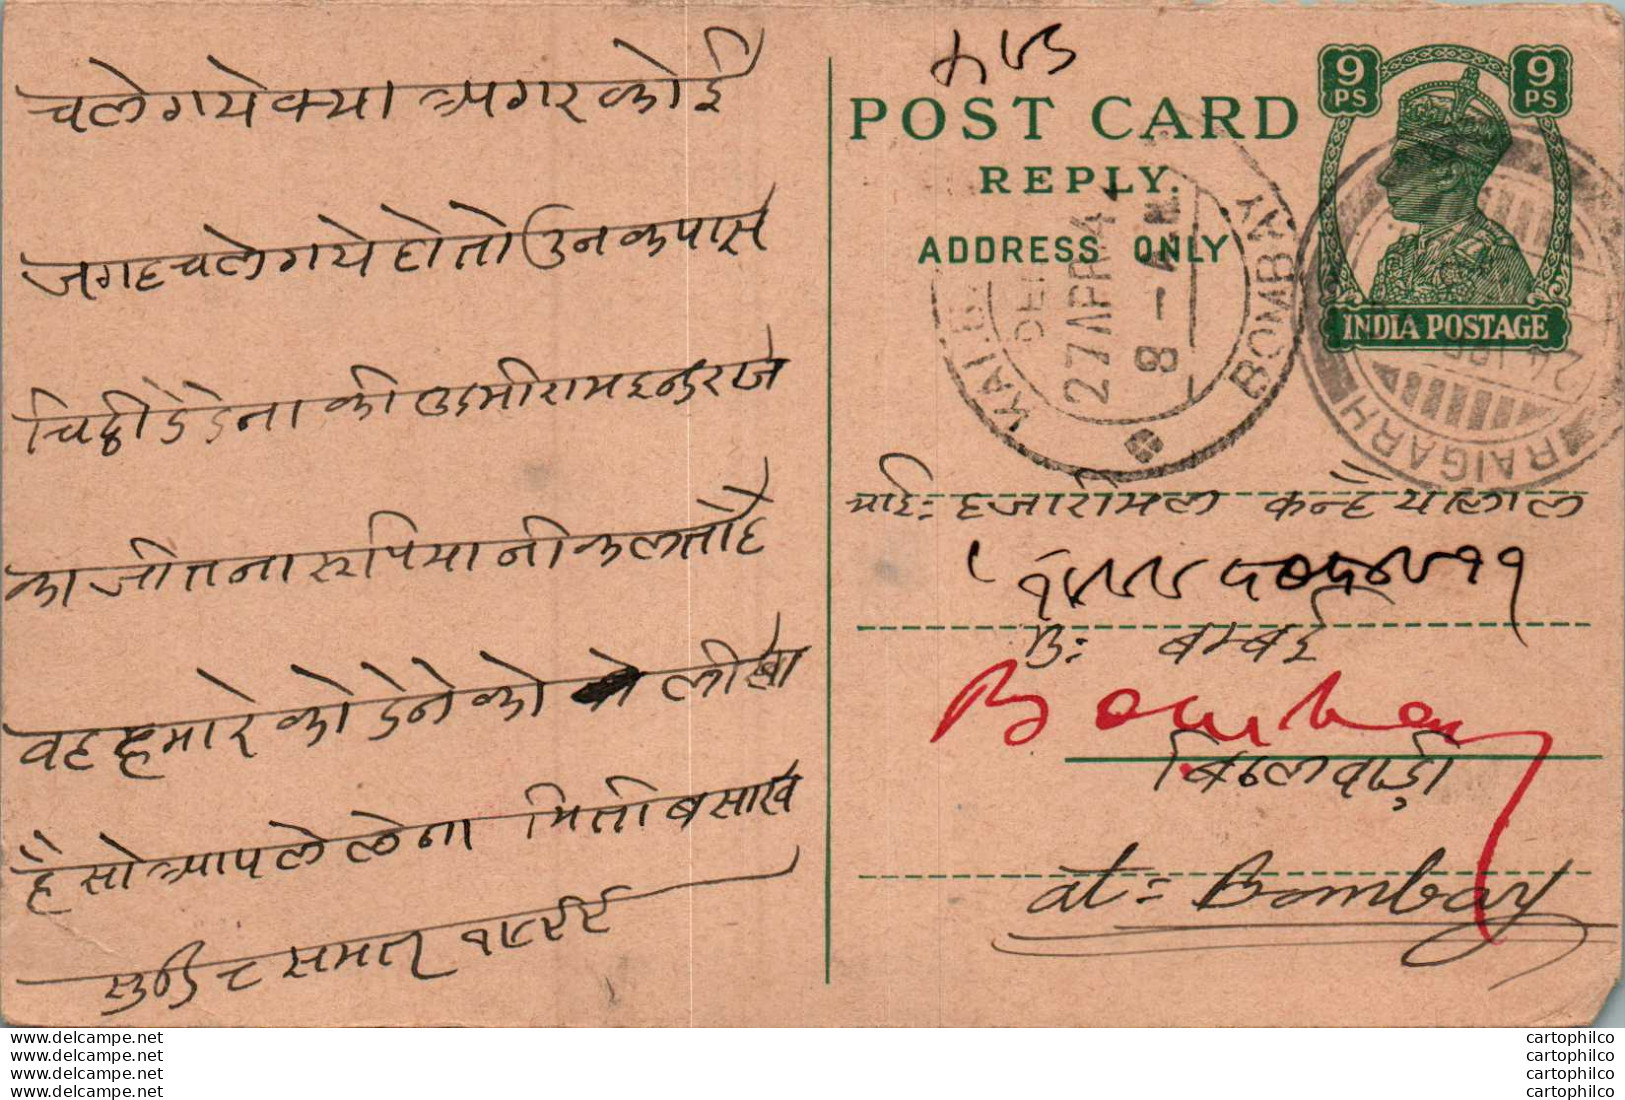 चले गये क्या अगर कोई
जगह चले गये हो तो उनक पास
चिठ्ठी देदेना की लछमीराम इन्दरज
का जीतना रूपिया नीकलता है
वह हमारे को देने को लीखा
है सो आप ले लेना मिती बसाख
सुदि ८ समत्
POST CARD
REPLY.
ADDRESS ONLY
9 PS 9 PS
INDIA POSTAGE
27 APR 4
8 - A.M.
BOMBAY
RAIGARH
भाई: हजारीमल कन्हैयालाल
B: बम्बई
Bombay
at = Bombay
delcampe.net
delcampe.net
delcampe.net
delcampe.net
cartophilco
cartophilco
cartophilco
cartophilco